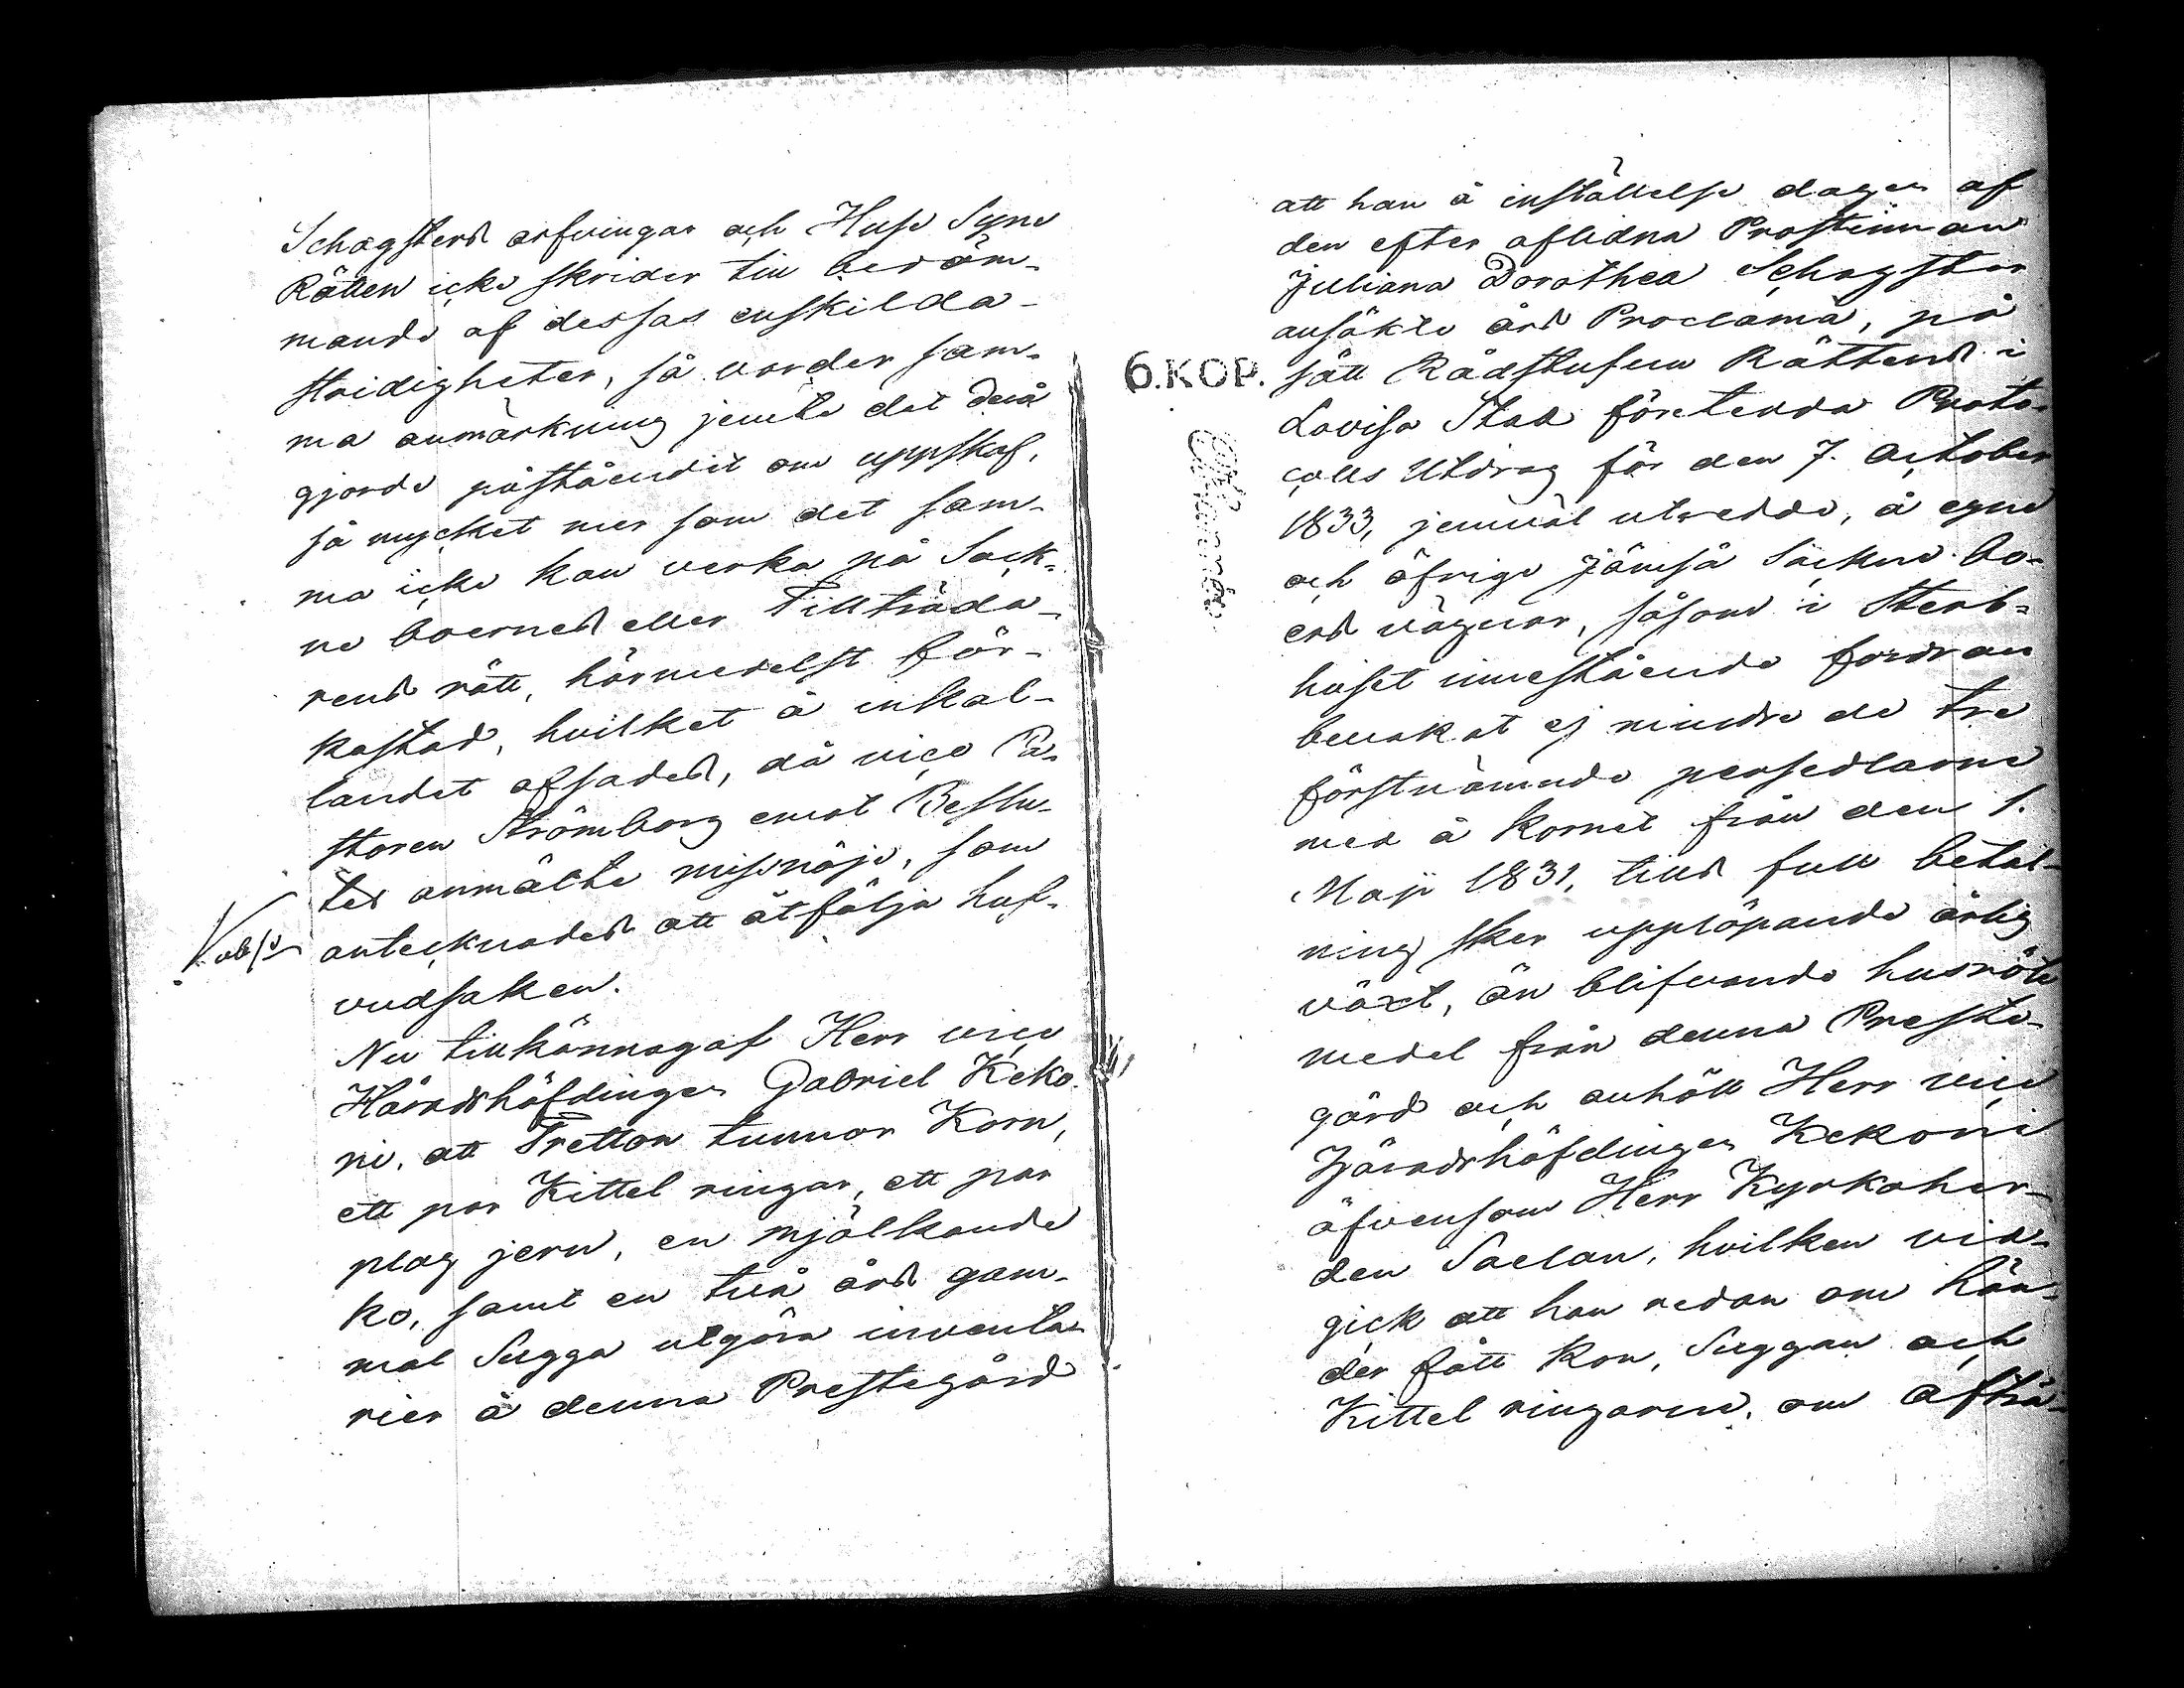 Schogsters arfvingar och Huse Syne
Rätten icke skrider till bedöm-
mande af dessas enskilda
stridigheter, så varder sam-
ma anmärkning jemte det derå
gjorde påståendet om uppskof,
så mycket mer som det sam-
ma icke kan verka på Sock-
ne boernes eller Tillträda-
rens rätt, härmedelst för-
kastad, hvilket å inkal-
landet afsades, då vice Pa-
storen Strömborg emot Beslu-
tet anmälte missnöje, som
antecknades att åtfölja huf-
vudsaken.
Nu tillkännagaf Herr vice
Häradshöfdingen Gabriel Keko-
ni, att Tretton tunnor Korn,
ett par Kittel ringar, ett par
plog jern, en mjölkande
ko, samt en två års gam-
mal Sugga utgöra inventa-
rier å denna Prestegård
6. KOP.
att han å inställelse dagen af
den efter aflidna Prostinnan
Juliana Dorothea Schogster
ansökte års Proclama, på
sätt Rådstufvu Rättens i
Lovisa Stad företedda Proto-
colls Utdrag för den 7. October
1833, jemväl utvedde, å egne
och öfrige Jämsä Sockne bo-
ers vägnar, såsom i Sterb-
huset innestående fordran
bevakat ej mindre de tre
förstnämnde persedlarne
med å kornet från den 1.
Maji 1831, tills full betal-
ning sker upplöpande årlig
växt, än blifvande husröte
medel från denna Preste-
gård och anhöll Herr vice
Häradshöfdingen Kekoni
äfvensom Herr Kyrkoher-
den Saelan, hvilken vid-
gick att han redan om hän-
der fått Kon, Suggan och
Kittel ringarne, om afträ-